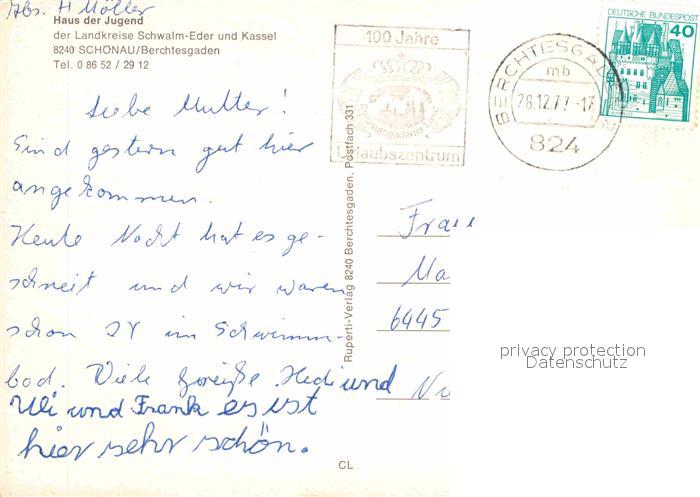 Abs. H Möller
Haus der Jugend
der Landkreise Schwalm-Eder und Kassel
8240 SCHÖNAU/Berchtesgaden
Tel. 0 86 52 / 29 12
Liebe Mutter!
Sind gestern gut hier
angekommen.
Heute Nacht hat es ge-
schneit und wir waren
schon im Schwimm-
bad. Viele Hedi und
Uli und Frank es ist
hier sehr schön.
Ruperti-Verlag 8240 Berchtesgaden, Postfach 331
CL
100 Jahre
Urlaubszentrum
BERCHTESGAD
mb
28.12.77-17
824
DEUTSCHE BUNDESPOST
40
Frau
Ma
6445
privacy protection
Datenschutz